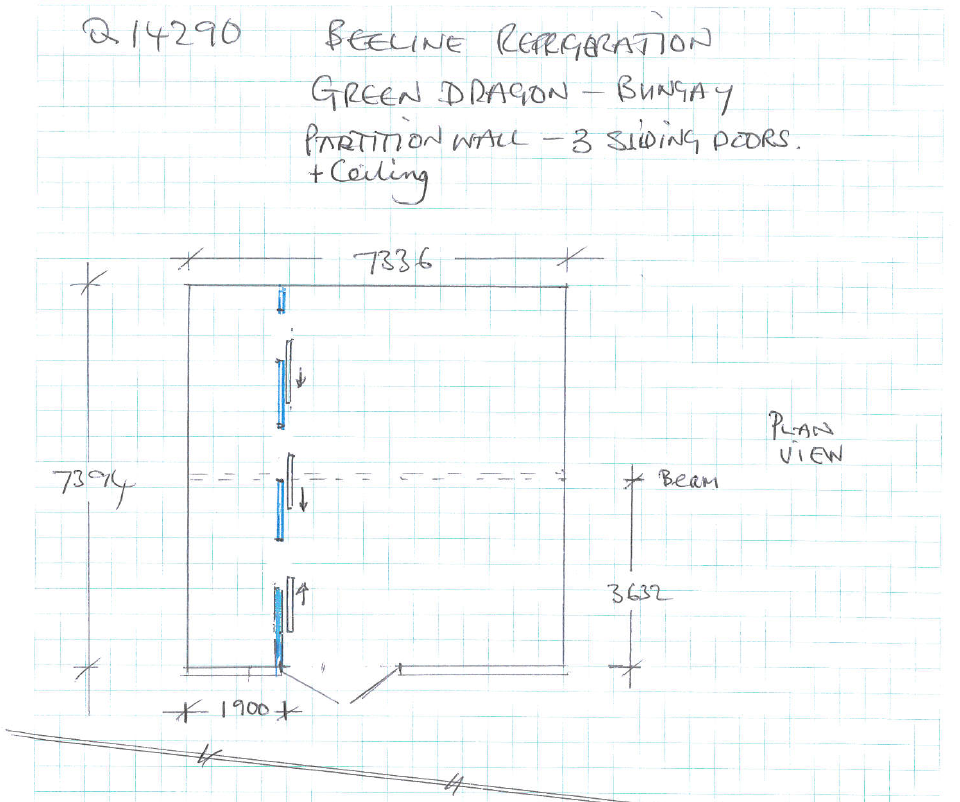 Q14290 BEELINE REFRGERATION
GREEN DRAGON - BUNGAY
PARTITION WALL - 3 SLIDING DOORS.
+ Ceiling
7336
PLAN
VIEW
7394
Beam
3632
1900